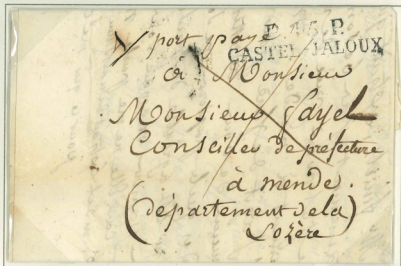 port payé
P. 45. P.
CASTEL-JALOUX
à Monsieur
Monsieur Fayel
Conseiller de préfecture
à mende.
(département de la
Lozère)